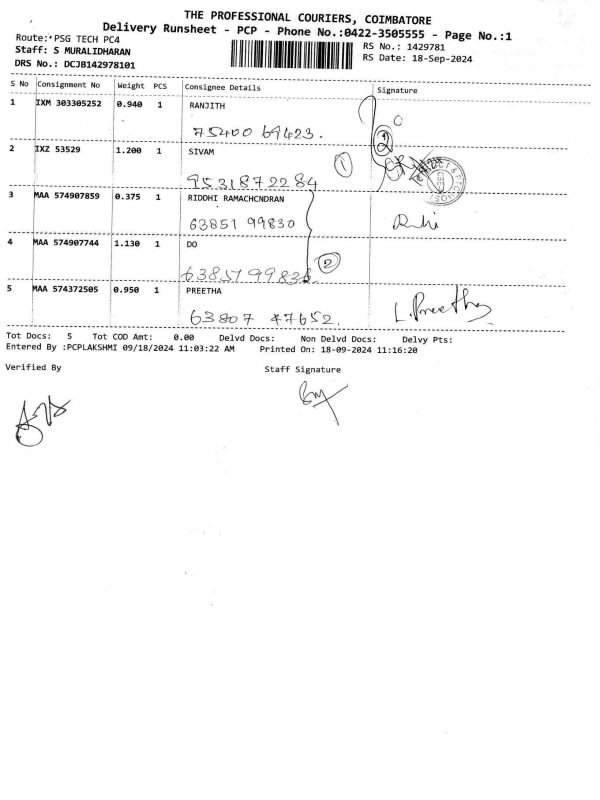 THE PROFESSIONAL COURIERS, COIMBATORE
Delivery Runsheet - PCP - Phone No.:0422-3505555 - Page No.:1
Route: PSG TECH PC4
RS No.: 1429781
Staff: S MURALIDHARAN
RS Date: 18-Sep-2024
DRS No.: DCJB142978101
S No Consignment No Weight PCS Consignee Details Signature
1 IXM 303305252 0.940 1 RANJITH
75400 69423.
2
2 IXZ 53529 1.200 1 SIVAM
1
9531872284
3 MAA 574907859 0.375 1 RIDDHI RAMACHCNDRAN
63851 99830
4 MAA 574907744 1.130 1 DO
2
5 MAA 574372505 0.950 1 PREETHA
63807 47652.
L. Preetha
Tot Docs: 5 Tot COD Amt: 0.00 Delvd Docs: Non Delvd Docs: Delvy Pts:
Entered By :PCPLAKSHMI 09/18/2024 11:03:22 AM Printed On: 18-09-2024 11:16:20
Verified By Staff Signature